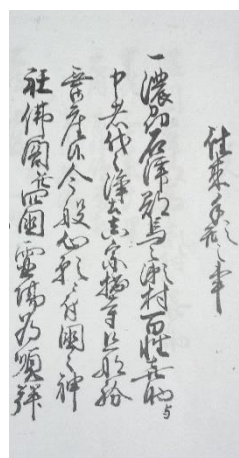 往来手形之事
一濃州石津郡馬之瀬村百姓 与
申者代々浄土真宗拙寺旦那紛
無御座候今般心願ニ付国々神
社佛閣並四国霊場為順拝